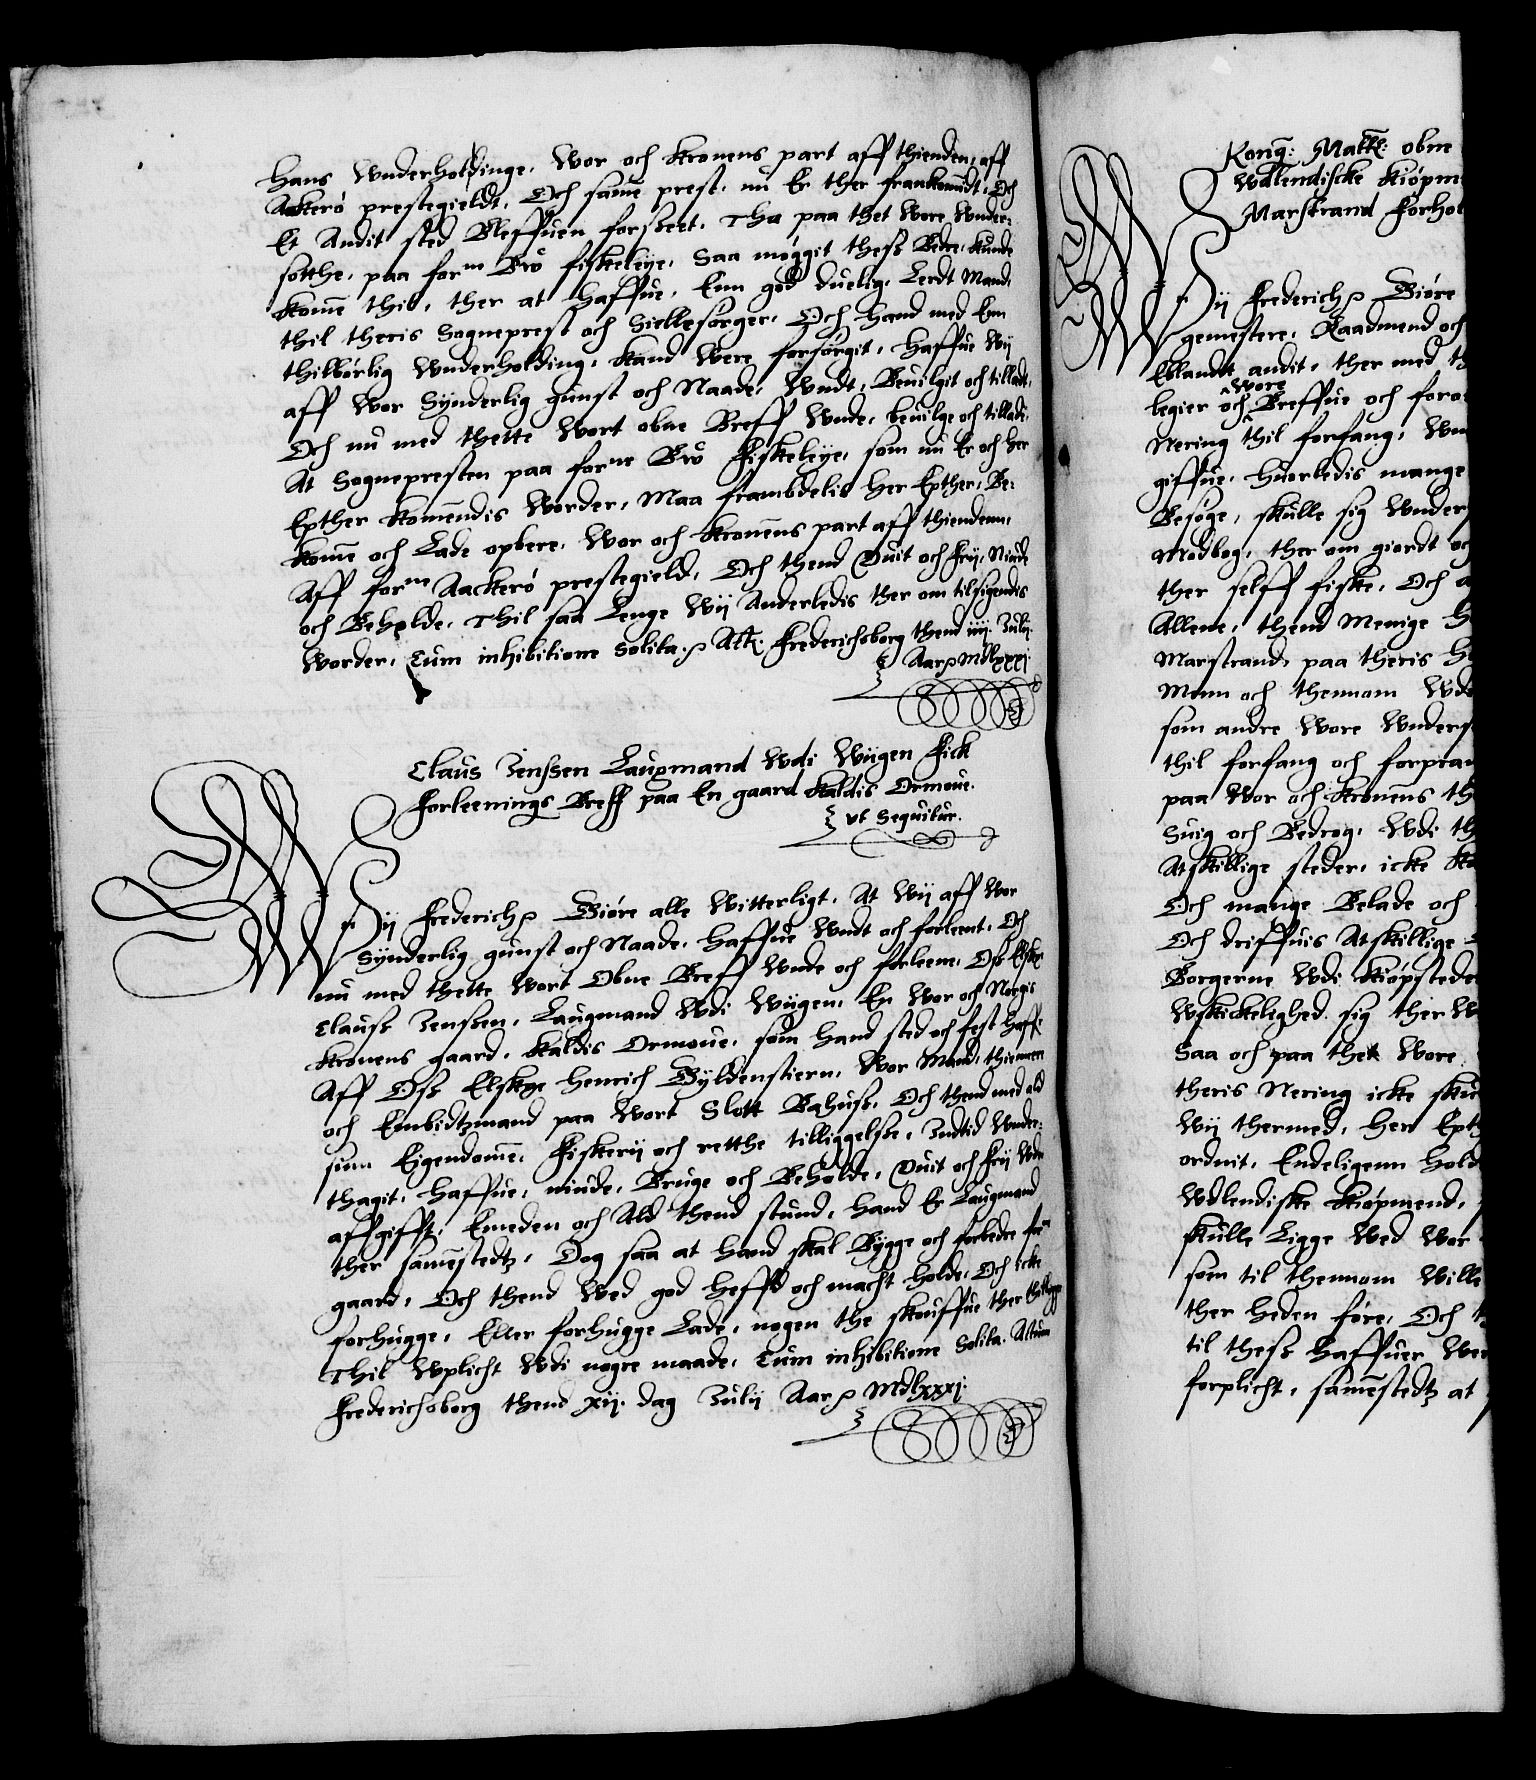 hans Wnderholdinge, Wor och Kronens part aff thienden, aff
Aakerø prestegieldt, Och same prest, nu Er ther fraakomidt, Och
Et Andit sted Bleffuen forsseet, Tha paa thet Wore Wnder-
sotthe, paa forne Brø fiskeleye, Saa møggit thess Bedre, Kunde
Kome thil, ther at haffue, Enn god duelig, Lerdt Mand,
thil theris Sogneprest och Siellesørger, Och hand med Enn
thilbørlig Wnderholding, Kand Were forsørgit, Haffue Wij
aff Wor Synderlig gunst och Naade, Wndt, Beuilgit och tilladt,
Och nu med thette Wort obne Breff Wnde, beuilge och tillade,
At Sognepresten paa forne Brø Fiskeleye, som nu Er och her
Epther Komendis Worder, Maa frambdelis her Epther, Be-
Kome och Lade opbere, Wor och Kronens part aff thiendenn,
Aff forne Aackerø prestegield, Och thend Quit och Frij, Niude
och Beholde, Thil saa Lenge Wij Anderledis ther om tilsigendis
Worder, Cum inhibitione Solita. Act. Frederichsborg thend iiij. Julij.
Aar MDlxxxj.
Claus Jenssen Laugmand Wdi Wiigen Fick
Forleenings Breff paa En gaard Kaldis Ormoue.
vt Sequitur.
Wij Frederich Giøre alle Witterligt, At Wij aff Wor
Synderlig gunst och Naade, Haffue Wndt och forleent, Och
nu med thette Wort Obne Breff Wnde och forleene, Oss Elske
Clauss Jenssen, Laugmand Wdi Wiigen, En Wor och Norgis
Kronens gaard, Kaldis Ormoue, som hand sted och fest haff:
Aff Oss Elskge Henrich Gyldenstiern, Wor Mand, thiennere
och Embidtzmand paa Wort Slott Bahuss, Och thend med ald
sinn Eigendome, Fiskerij och retthe tilliggelsse, Indtid Wnder-
thagit, Haffue, niude, Bruge och Beholde, Quit och Frij Wdn
affgifft, Emeden och Ald thend stund, hand Er Laugmand
ther samestedtz, Dog saa at hand skal Bygge och forbedre forne
gaard, Och thend Wed god Heffd och macht holde, Och icke
forhugge, Eller forhugge Lade, nogen the skouffue ther thilligge
Thil Wplicht Wdi nogre maade, Cum inhibitione Solita. Actum
Frederichsborg thend xij. dag Julij Aar MDlxxxj.
Kong: Matt: obne
Wdlendiscke Kiøpm
Marstrand Forhol
Wij Frederich Giøre
gemestere, Raadmend och
Eblandt andit, ther med th
Wore
legier och Breffue och foro
Nering thil forfang, Wn
giffue, huorledis mange
Besøge, skulle sig Wnders
Modbog, ther om giordt oc
ther selff fiske, Och a
Allene, thend Menige H
Marstrand, paa theris H
Menn och thennom Wde
som andre Wore Wnders
thil forfang och forpran
paa Wor och Kronens th
Suig och Bedrog, Wdi th
Atskillige steder, icke Ko
Och mange Belade och
Och driffuis Atskillige
Borgerne Wdi Kiøpstede
Wskickelighed sig ther W
Saa och paa thet Wore
theris Nering icke sku
Wij thermed, her Epth
ordnit, Endeligenn hold
Wdlendiske Kiøpmend,
skulle Ligge Wed Wor
som til thennom Wille
ther heden føre, Och t
til thess haffuer Wer
forplicht, samestedtz at